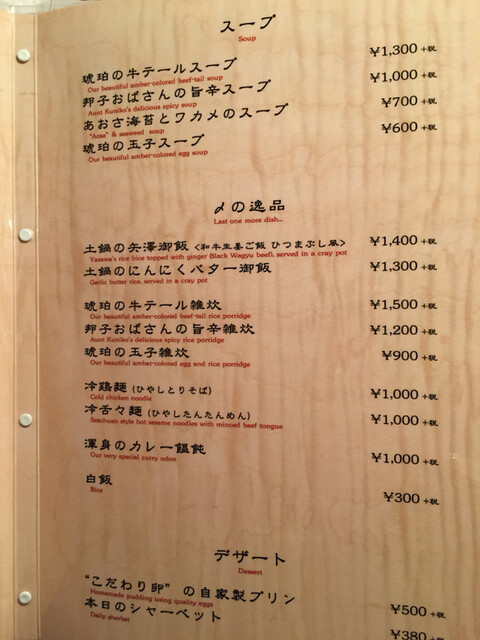 スープ
Soup
琥珀の牛テールスープ ¥1,300 +税
Our beautiful amber-colored beef-tail soup
邦子おばさんの旨辛スープ ¥1,000 +税
Aunt Kuniko's delicious spicy soup
あおさ海苔とワカメのスープ ¥700 +税
"Aosa" & seaweed soup
琥珀の玉子スープ ¥600 +税
Our beautiful amber-colored egg soup
〆の逸品
Last one more dish...
土鍋の矢澤御飯 <和牛生姜ご飯 ひつまぶし風> ¥1,400 +税
Yazawa's rice (rice topped with ginger Black Wagyu beef), served in a cray pot
土鍋のにんにくバター御飯 ¥1,300 +税
Garlic butter rice, served in a cray pot
琥珀の牛テール雑炊 ¥1,500 +税
Our beautiful amber-colored beef-tail rice porridge
邦子おばさんの旨辛雑炊 ¥1,200 +税
Aunt Kuniko's delicious spicy rice porridge
琥珀の玉子雑炊 ¥900 +税
Our beautiful amber-colored egg and rice porridge
冷鶏麺 (ひやしとりそば) ¥1,000 +税
Cold chicken noodle
冷舌々麺 (ひやしたんたんめん) ¥1,000 +税
Szechuan style hot sesame noodles with minced beef tongue
渾身のカレー饂飩 ¥1,000 +税
Our very special curry udon
白飯 ¥300 +税
Rice
デザート
Dessert
"こだわり卵" の自家製プリン ¥500 +税
Homemade pudding using quality eggs
本日のシャーベット ¥380 +税
Daily sherbet